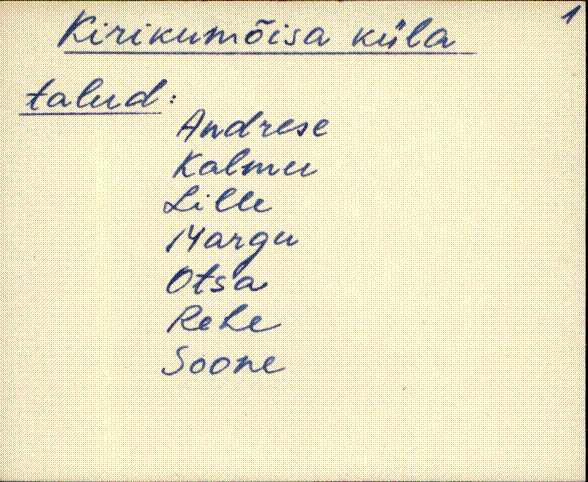 1
Kirikumõisa küla
talud:
Andrese
Kalmu
Lille
Margu
Otsa
Rehe
Soone